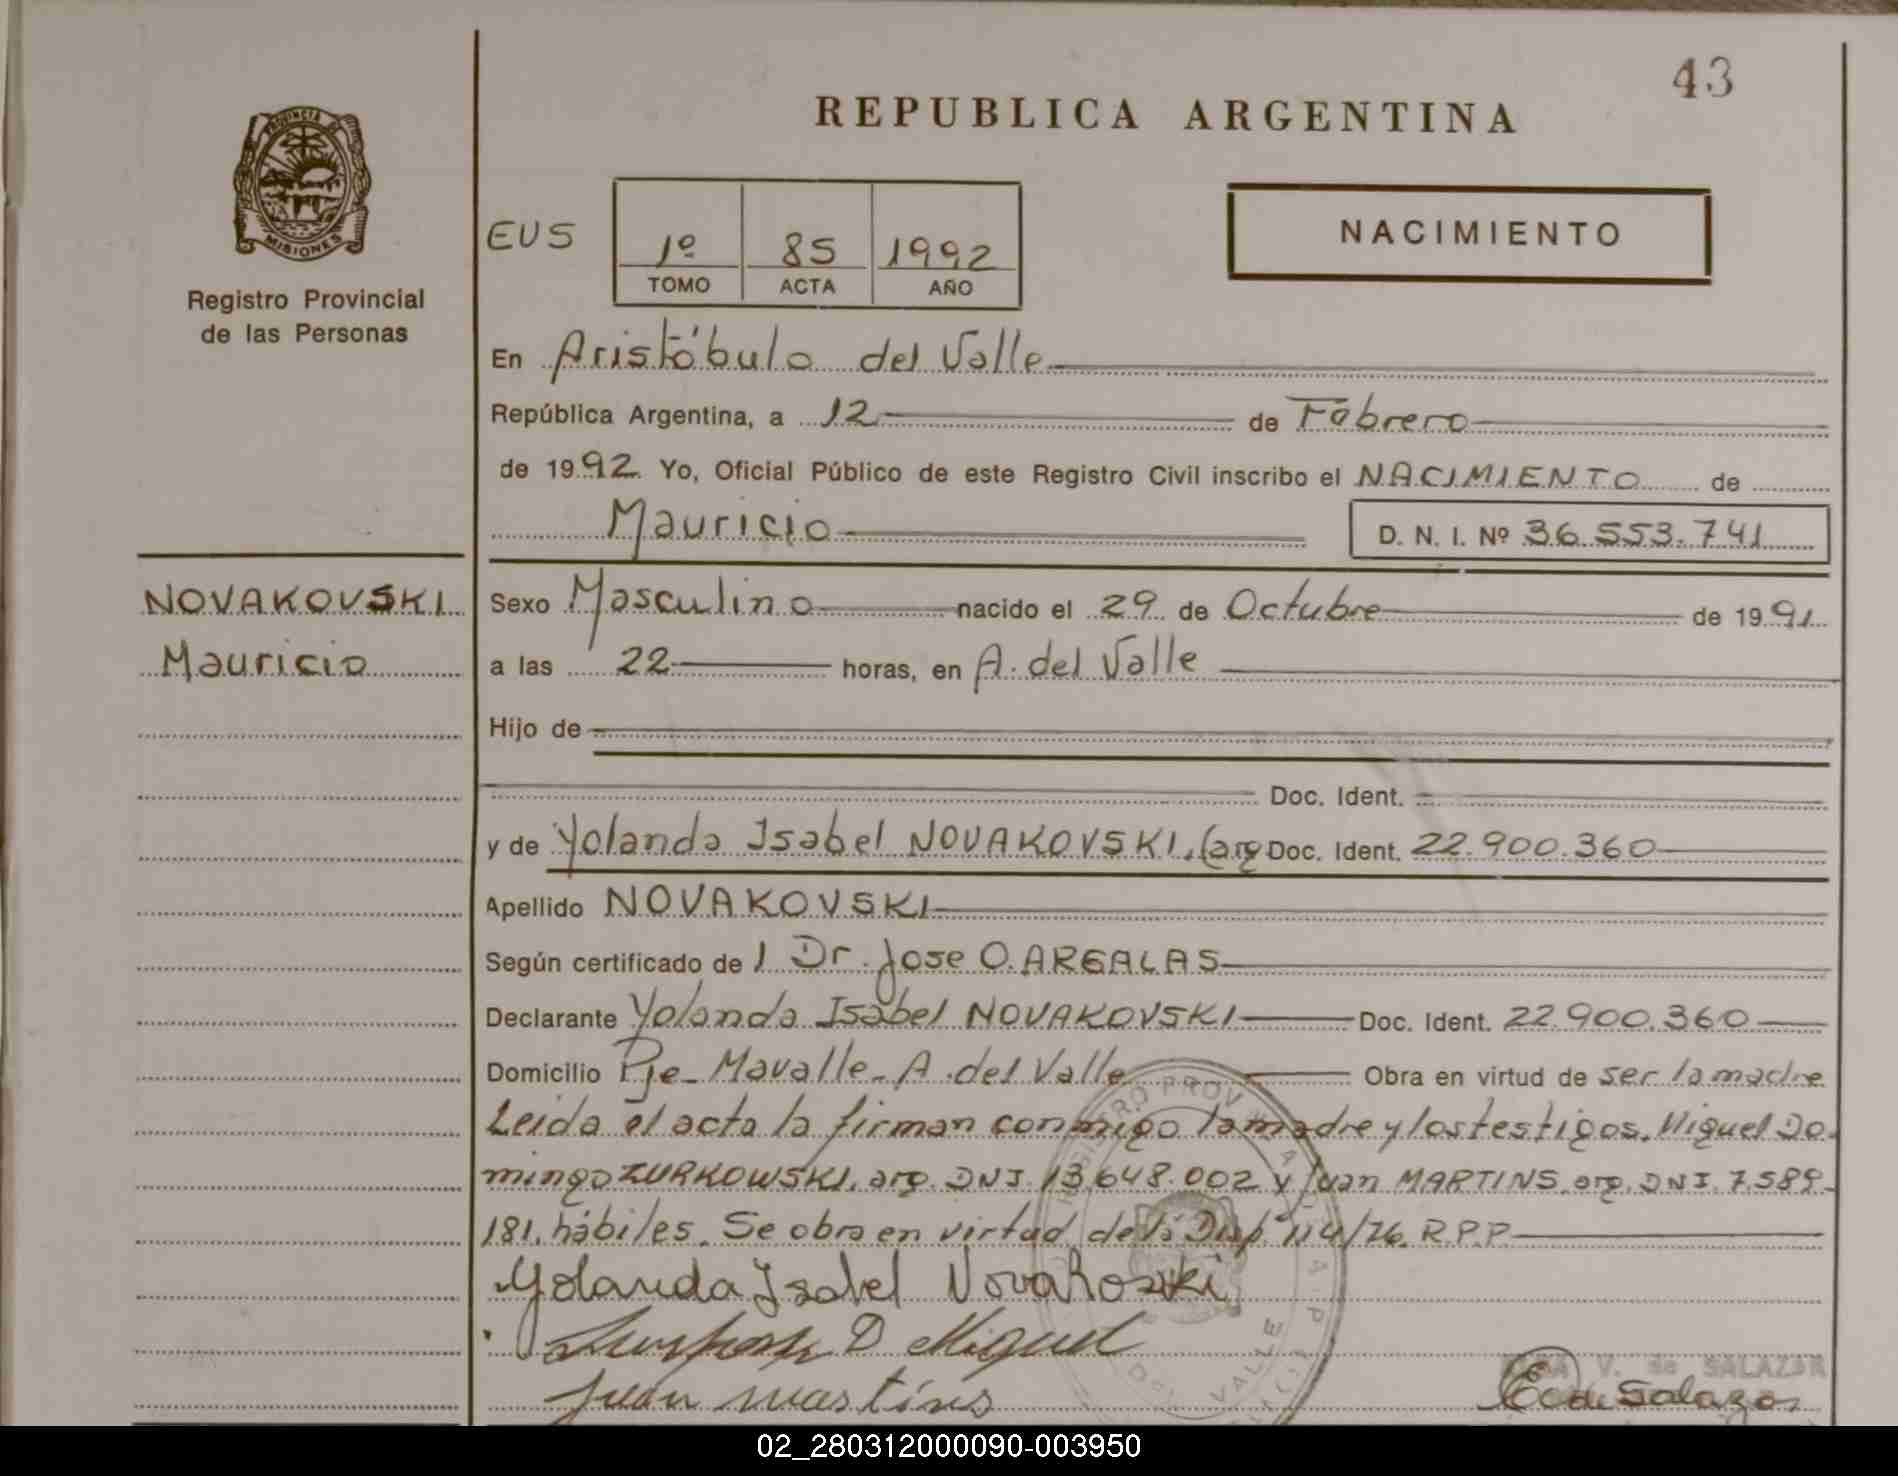 43
REPUBLICA ARGENTINA
PROVINCIA DE
MISIONES
Registro Provincial
de las Personas
EUS
1º 85 1992
TOMO ACTA AÑO
NACIMIENTO
En Aristóbulo del Valle
República Argentina, a 12 de Febrero
de 1992 Yo, Oficial Público de este Registro Civil inscribo el NACIMIENTO de
Mauricio D. N. I. Nº 36.553.741
NOVAKOVSKI
Mauricio
Sexo Masculino nacido el 29 de Octubre de 1991
a las 22 horas, en A. del Valle
Hijo de
Doc. Ident.
y de Yolanda Isabel NOVAKOVSKI, (arg Doc. Ident. 22.900.360
Apellido NOVAKOVSKI
Según certificado de 1 Dr. Jose O. ARGALAS
Declarante Yolanda Isabel NOVAKOVSKI Doc. Ident. 22.900.360
Domicilio Pje- Mavalle- A. del Valle Obra en virtud de ser la madre
Leida el acta la firman conmigo la madre y los testigos, Miguel Do-
mingo ZURKOWSKI, arg. DNI. 13.648.002 y Juan MARTINS, arg. DNI. 7.589-
181, hábiles. Se obra en virtud de la Disp. 114/76. R.P.P.
Yolanda Isabel
D Miguel
Juan Martíns
V. de SALAZAR
de Salazar
DEL VALLE
02_280312000090-003950